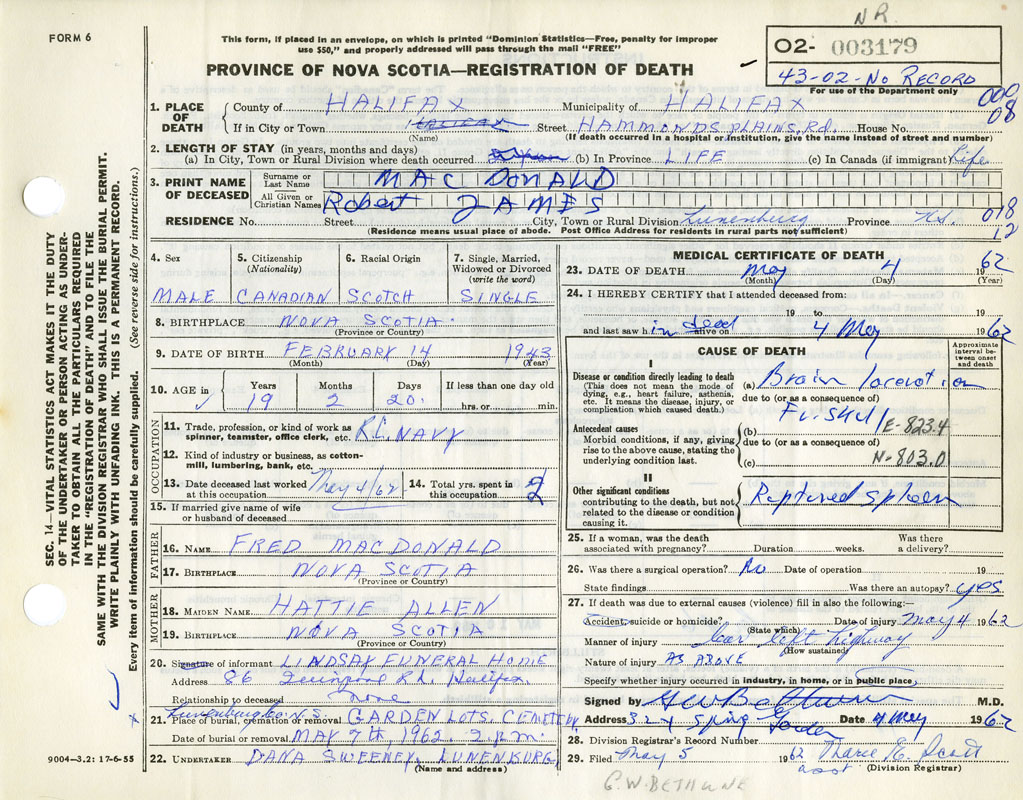 N.R.
FORM 6
This form, if placed in an envelope, on which is printed "Dominion Statistics—Free, penalty for improper
use $50," and properly addressed will pass through the mail "FREE"
PROVINCE OF NOVA SCOTIA—REGISTRATION OF DEATH
02- 003179
43-02-NO RECORD
For use of the Department only
000
08
1. PLACE OF DEATH County of HALIFAX Municipality of HALIFAX
If in City or Town HALIFAX (Name) Street HAMMONDS PLAINS, Rd. House No.
(If death occurred in a hospital or institution, give the name instead of street and number)
2. LENGTH OF STAY (in years, months and days)
(a) In City, Town or Rural Division where death occurred (b) In Province LIFE (c) In Canada (if immigrant) Life
3. PRINT NAME OF DECEASED
Surname or Last Name MAC DONALD
All Given or Christian Names Robert JAMES
RESIDENCE No. Street City, Town or Rural Division Lunenburg Province N.S. 018
12
(Residence means usual place of abode. Post Office Address for residents in rural parts not sufficient)
4. Sex 5. Citizenship (Nationality) 6. Racial Origin 7. Single, Married, Widowed or Divorced (write the word)
MALE CANADIAN SCOTCH SINGLE
8. BIRTHPLACE NOVA SCOTIA
(Province or Country)
9. DATE OF BIRTH FEBRUARY 14 1943
(Month) (Day) (Year)
10. AGE in Years Months Days If less than one day old
19 2 20. hrs. or min.
OCCUPATION
11. Trade, profession, or kind of work as spinner, teamster, office clerk, etc. R.C. NAVY
12. Kind of industry or business, as cotton-mill, lumbering, bank, etc.
13. Date deceased last worked at this occupation May 4/62 14. Total yrs. spent in this occupation 2
15. If married give name of wife or husband of deceased
FATHER
16. NAME FRED MACDONALD
17. BIRTHPLACE NOVA SCOTIA
(Province or Country)
MOTHER
18. MAIDEN NAME HATTIE ALLEN
19. BIRTHPLACE NOVA SCOTIA
(Province or Country)
20. Signature of informant LINDSAY FUNERAL HOME
Address 86 Rd. Halifax
Relationship to deceased none
Lunenburg Co. N.S.
21. Place of burial, cremation or removal GARDEN LOTS, CEMETERY
Date of burial or removal MAY 7th, 1962. 2 p.m.
22. UNDERTAKER DANA SWEENEY, LUNENBURG
(Name and address)
9004—3.2: 17-6-55
SEC. 14—VITAL STATISTICS ACT MAKES IT THE DUTY
OF THE UNDERTAKER OR PERSON ACTING AS UNDER-
TAKER TO OBTAIN ALL THE PARTICULARS REQUIRED
IN THE "REGISTRATION OF DEATH" AND TO FILE THE
SAME WITH THE DIVISION REGISTRAR WHO SHALL ISSUE THE BURIAL PERMIT.
WRITE PLAINLY WITH UNFADING INK. THIS IS A PERMANENT RECORD.
Every item of information should be carefully supplied. (See reverse side for instructions.)
MEDICAL CERTIFICATE OF DEATH
23. DATE OF DEATH May 4 1962
(Month) (Day) (Year)
24. I HEREBY CERTIFY that I attended deceased from:
19 to 19
and last saw him dead alive on 4 May 1962
CAUSE OF DEATH
Approximate interval between onset and death
I
Disease or condition directly leading to death
(This does not mean the mode of dying, e.g., heart failure, asthenia, etc. It means the disease, injury, or complication which caused death.)
(a) Brain laceration
due to (or as a consequence of)
Antecedent causes
Morbid conditions, if any, giving rise to the above cause, stating the underlying condition last.
(b) Fr. skull E-823.4
due to (or as a consequence of)
(c) N-803.0
II
Other significant conditions
contributing to the death, but not related to the disease or condition causing it.
Ruptured spleen
25. If a woman, was the death associated with pregnancy? Duration weeks. Was there a delivery?
26. Was there a surgical operation? No Date of operation 19
State findings Was there an autopsy? yes
27. If death was due to external causes (violence) fill in also the following:—
Accident, suicide or homicide? (State which) Date of injury May 4 1962
Manner of injury Car left highway
(How sustained)
Nature of injury AS ABOVE
Specify whether injury occurred in industry, in home, or in public place,
Signed by G W Bethune M.D.
Address 324 Spring Garden Date 4 May 1962
28. Division Registrar's Record Number
29. Filed May 5 1962 Marie E. Scott
asst (Division Registrar)
G.W. BETHUNE